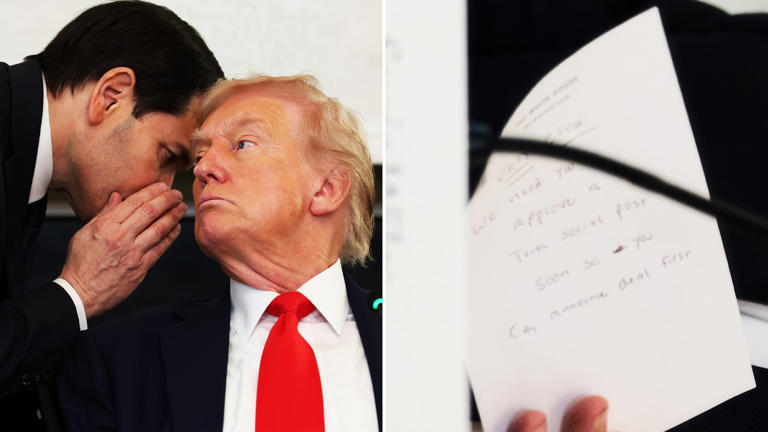 THE WHITE HOUSE
WASHINGTON
Very close
We need you
approve a
Truth Social post
soon so you
can announce deal first